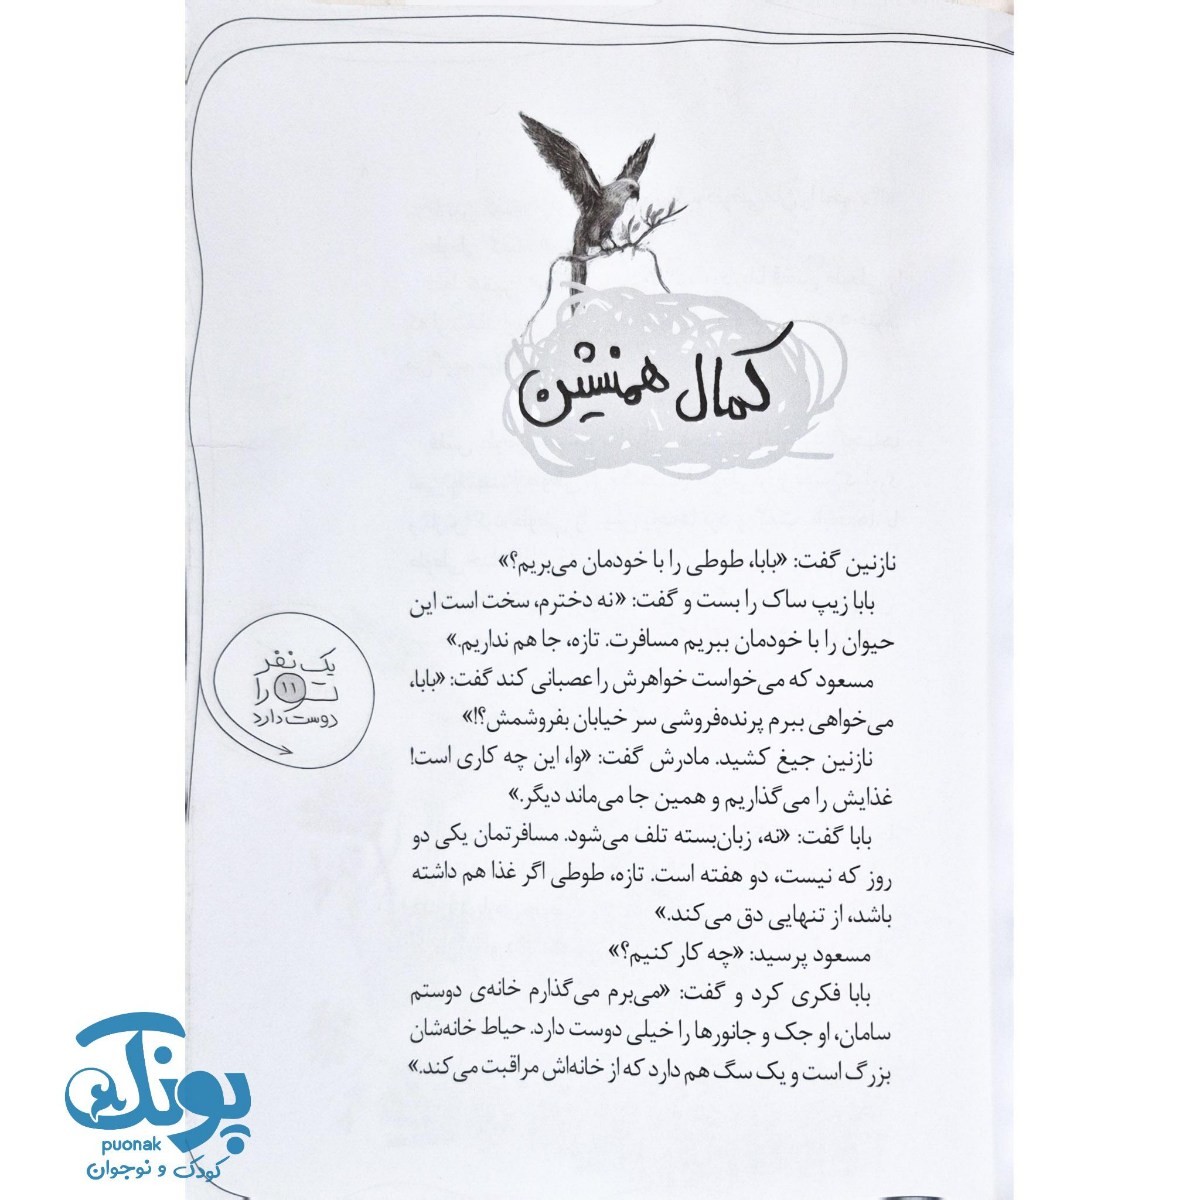 کمال همنشین
نازنین گفت: «بابا، طوطی را با خودمان می‌بریم؟»
بابا زیپ ساک را بست و گفت: «نه دخترم، سخت است این
حیوان را با خودمان ببریم مسافرت. تازه، جا هم نداریم.»
مسعود که می‌خواست خواهرش را عصبانی کند گفت: «بابا،
می‌خواهی ببرم پرنده‌فروشی سر خیابان بفروشمش؟!»
نازنین جیغ کشید. مادرش گفت: «وا، این چه کاری است!
غذایش را می‌گذاریم و همین جا می‌ماند دیگر.»
بابا گفت: «نه، زبان‌بسته تلف می‌شود. مسافرتمان یکی دو
روز که نیست، دو هفته است. تازه، طوطی اگر غذا هم داشته
باشد، از تنهایی دق می‌کند.»
مسعود پرسید: «چه کار کنیم؟»
بابا فکری کرد و گفت: «می‌برم می‌گذارم خانه‌ی دوستم
سامان، او جک و جانورها را خیلی دوست دارد. حیاط خانه‌شان
بزرگ است و یک سگ هم دارد که از خانه‌اش مراقبت می‌کند.»
یک نفر
تو را
۱۱
دوست دارد
پونک
puonak
کودک و نوجوان